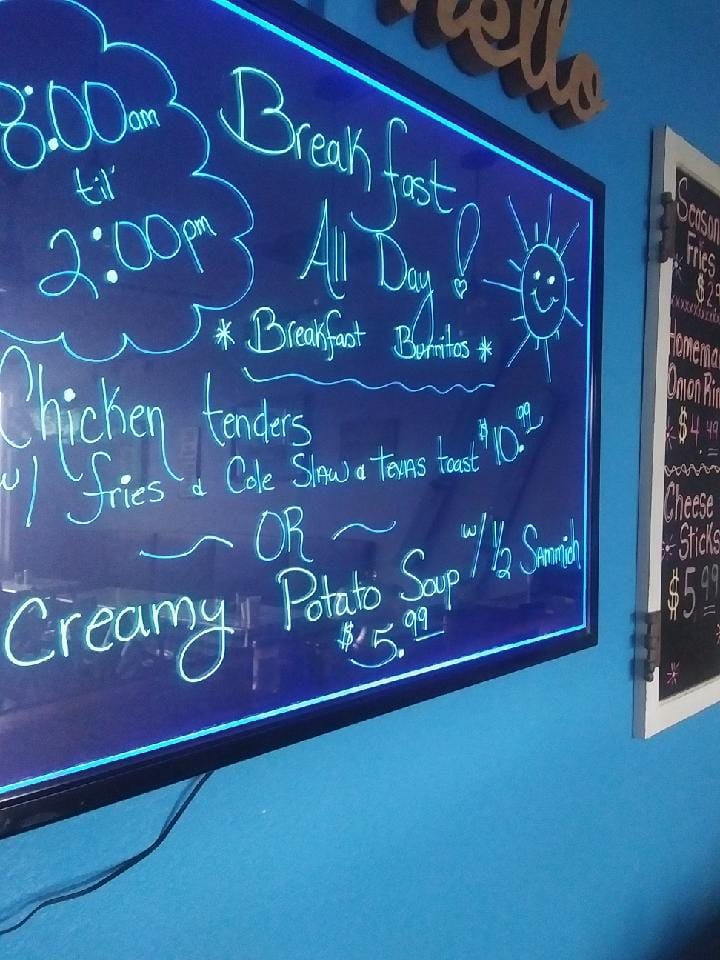 hello
8:00am
til'
2:00pm
Breakfast
All Day!
* Breakfast Burritos *
Chicken tenders
w/ fries & Cole Slaw & Texas toast $10.99
OR
Creamy Potato Soup w/ 1/2 Sammich
$5.99
Season
Fries
$2
Homema
Onion Rin
$4.49
Cheese
Sticks
$5.99